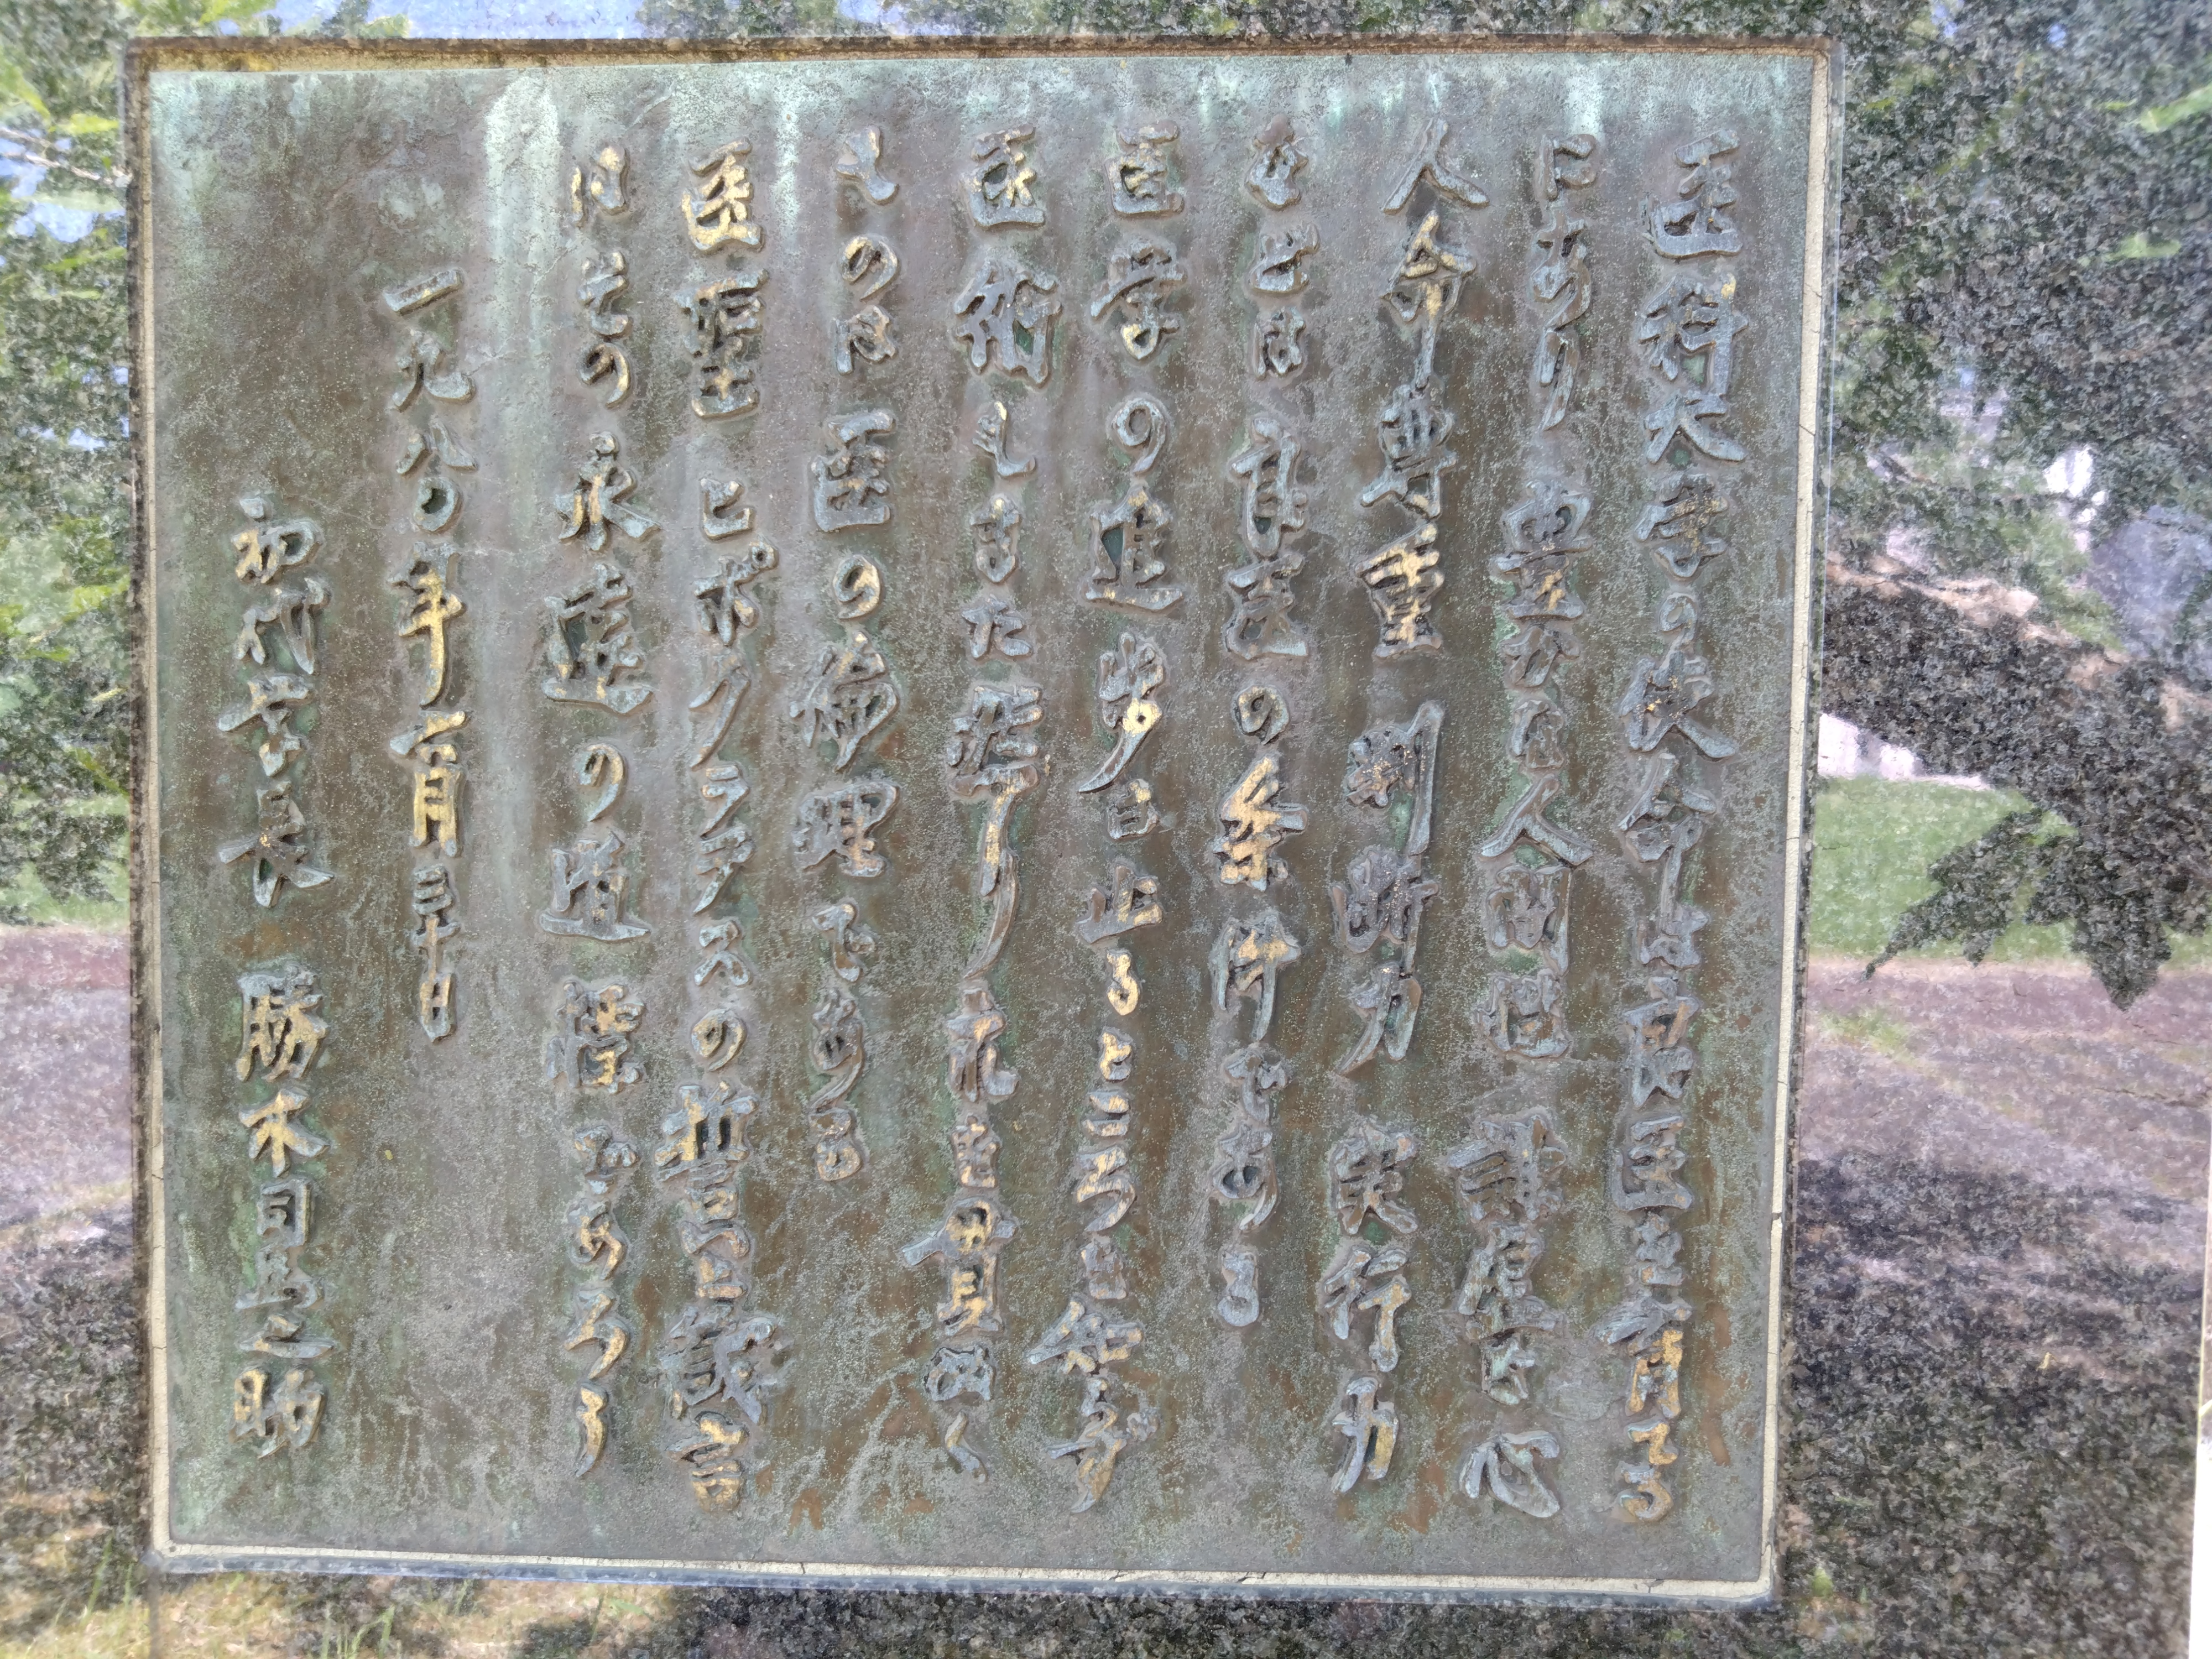 医科大学の使命は良医を育てる
にあり 豊かな人間性 謙虚な心
人命尊重 判断力 実行力
などは良医の条件である
医学の進歩は止るところを知らず
医術もまた然り これを貫ぬく
ものは医の倫理である
医聖ヒポクラテスの誓詞と誡言
はその永遠の道標であろう
一九八〇年六月三十日
初代学長 勝木司馬之助